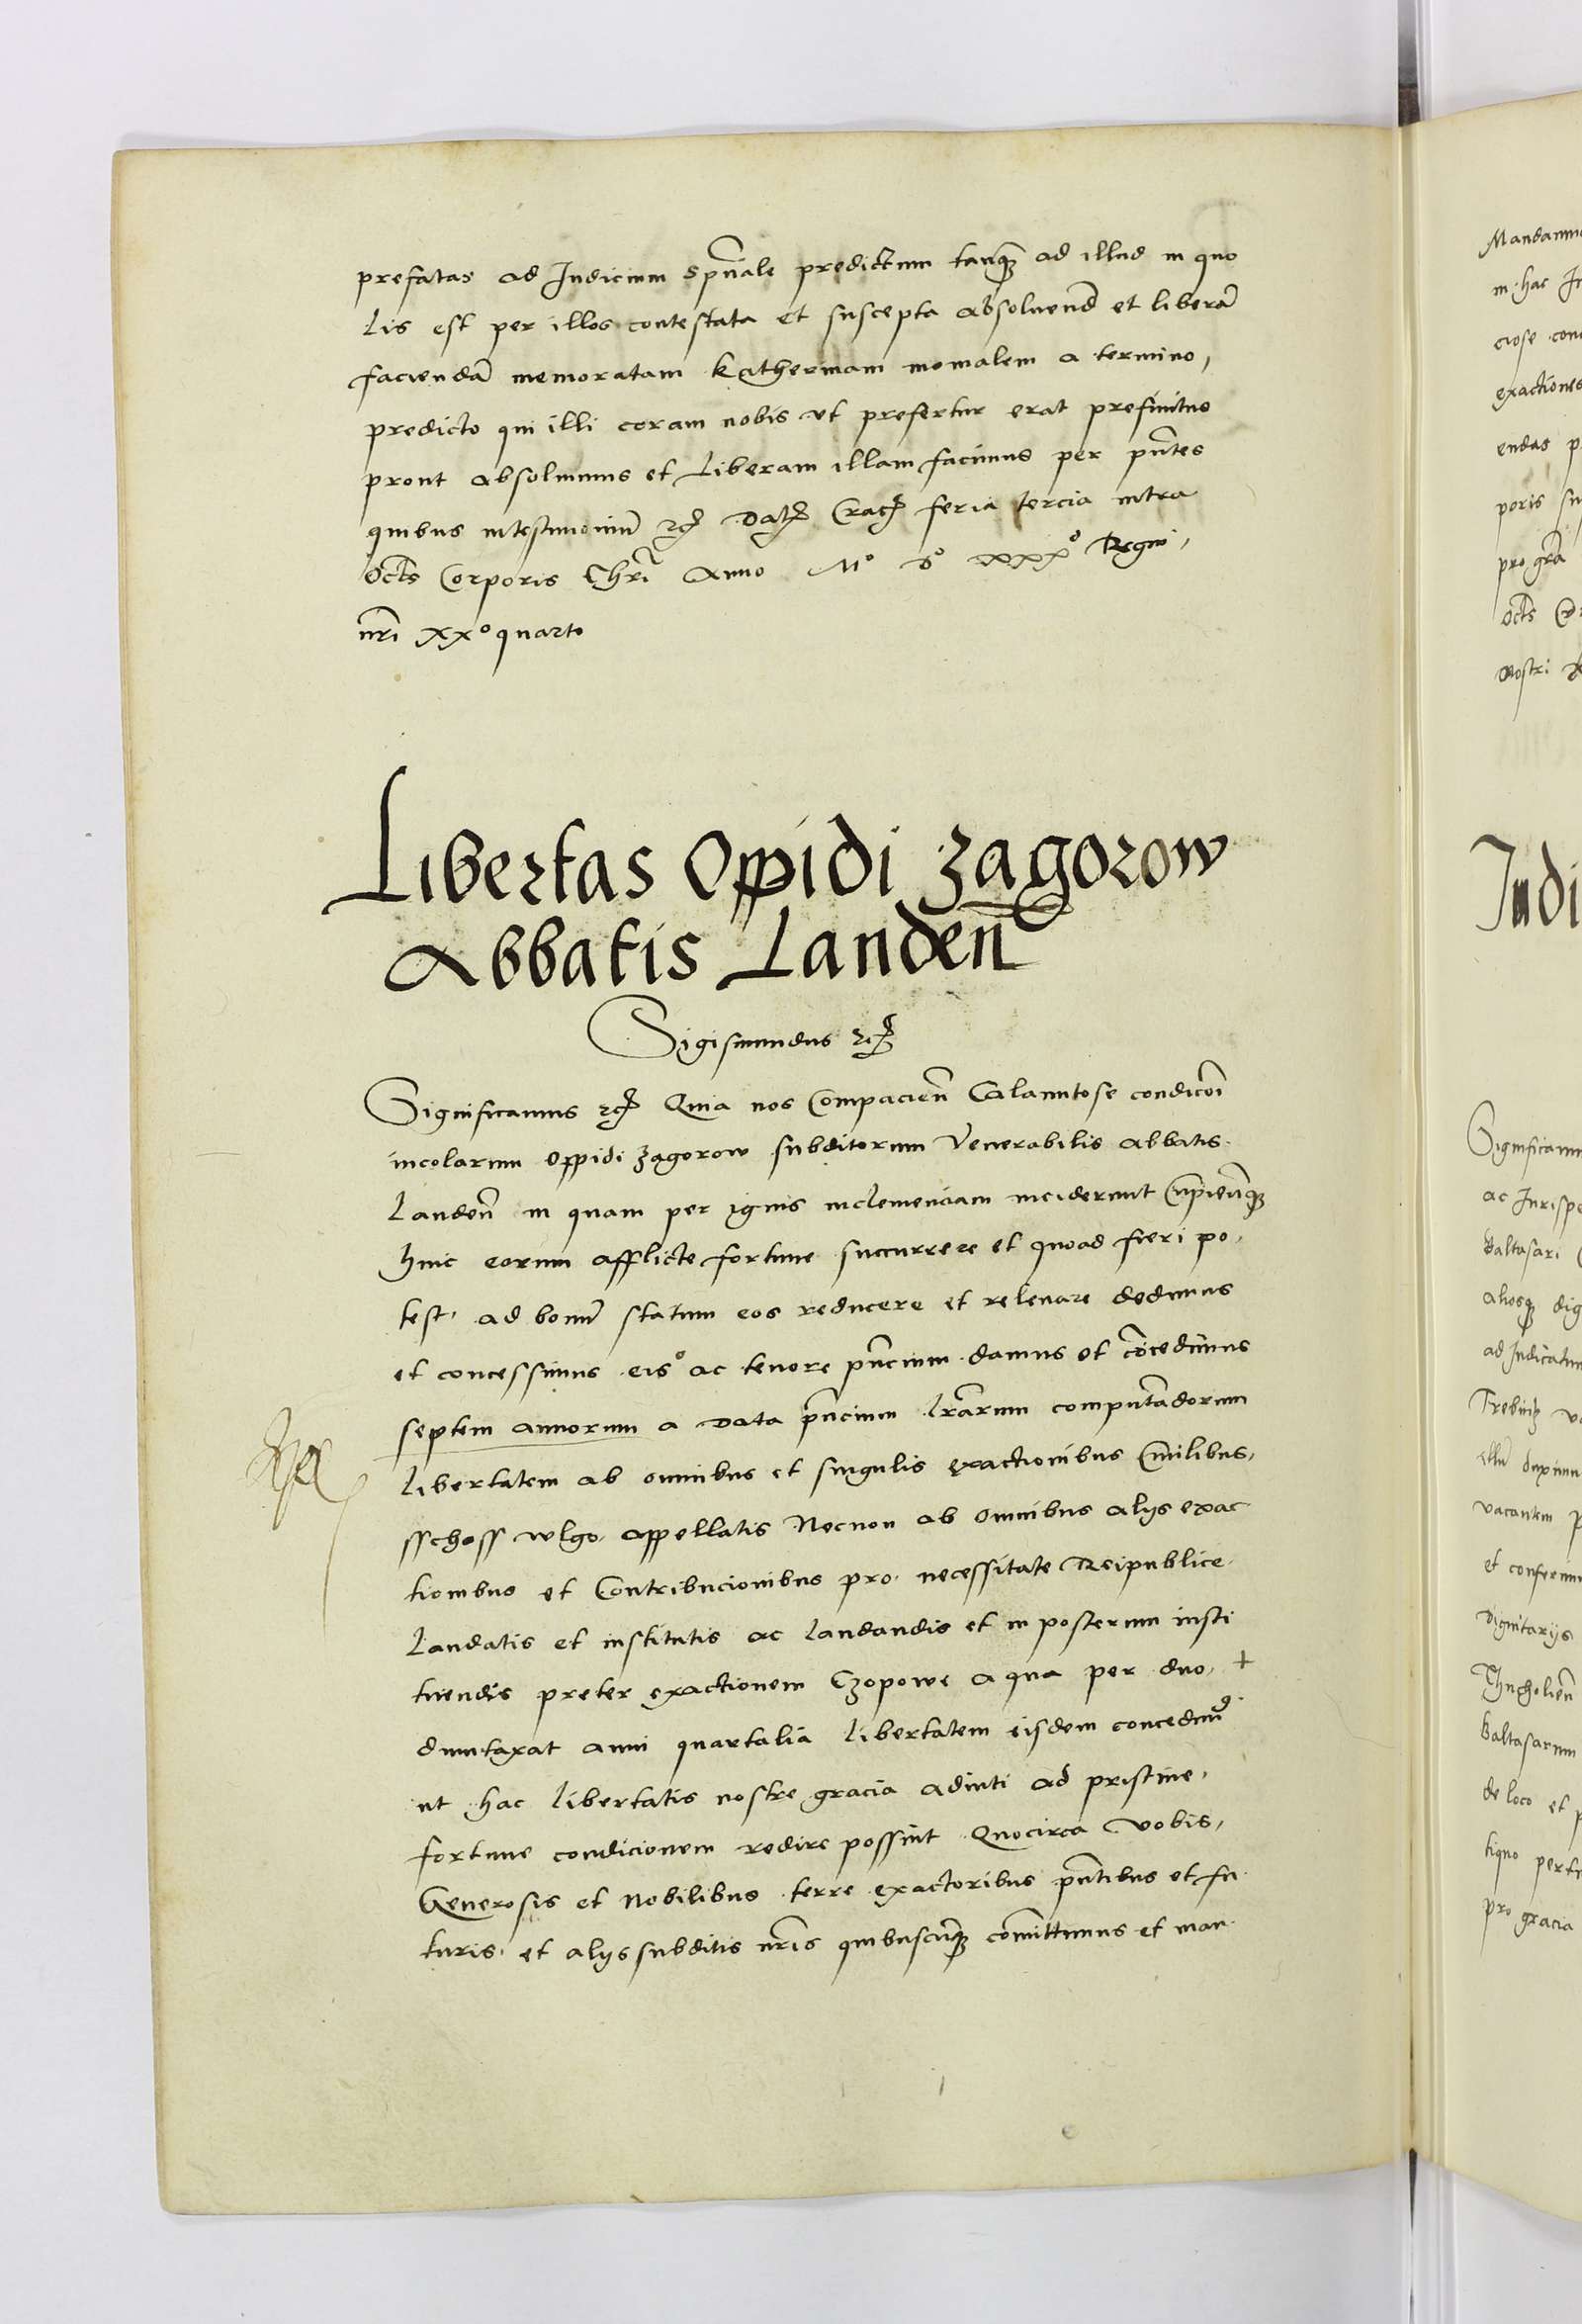 prefatas ad Iudicium spũale predictum tanq̃ ad illud in quo
lis est per illos contestata et suscepta absoluend̃ et liberã
faciendã memoratam Katherinam monialem a termino,
predicto qui illi coram nobis vt prefertur erat prefinitus
prout absoluimus et Liberam illam facimus per pñtes
quibus in testimoniũ etc̃ Dat̃ Crac̃ feria tercia intra
Octãs Corporis Chrĩ Anno Mº Dº xxxº Regni,
nrĩ xxº quarto
Libertas Oppidi Zagorow
Abbatis Landeñ
Sigismundus etc̃
Significamus etc̃ Quia nos Compacieñ Calamitose condicõi
incolarum Oppidi Zagorow subditorum Venerabilis abbatis
Landeñ in quam per ignis inclemenciam inciderunt Cupieñq̃
huic eorum afflicte fortune succurrere et quoad fieri po,
test, ad bonũ statum eos reducere et releuare dedimus
et concessimus eisº ac tenore pñcium damus et cõcedimus
septem annorum a Data pñcium lrãrum computãdorum
libertatem ab omnibus et singulis exactionibus Ciuilibus,
sschoss wlgo appellatis Necnon ab Omnibus alys exac
tionibus et Contribucionibus pro necessitate Reipublice
laudatis et institutis ac laudandis et in posterum insti
tuendis preter exactionem Czopowe a qua per duo, +
dumtaxat anni quartalia libertatem eisdem concedimꝰ
ut hac libertatis nostre gracia adiuti ad pristine,
fortune condicionem redire possint Quocirca vobis,
Generosis et Nobilibus terre exactoribus pñtibus et fu
turis, et alys subditis nrĩs quibuscũq̃ cõmittimus et man
Mandamus
in hac
exactiones
endas
poris
pro grã
Octãs
nostri
Indi
Significam
ac Iurispe
Baltasari
aliosq̃ dig
vacantem
et conferim
Dignitarys
Baltasarum
de loco et
pro gracia